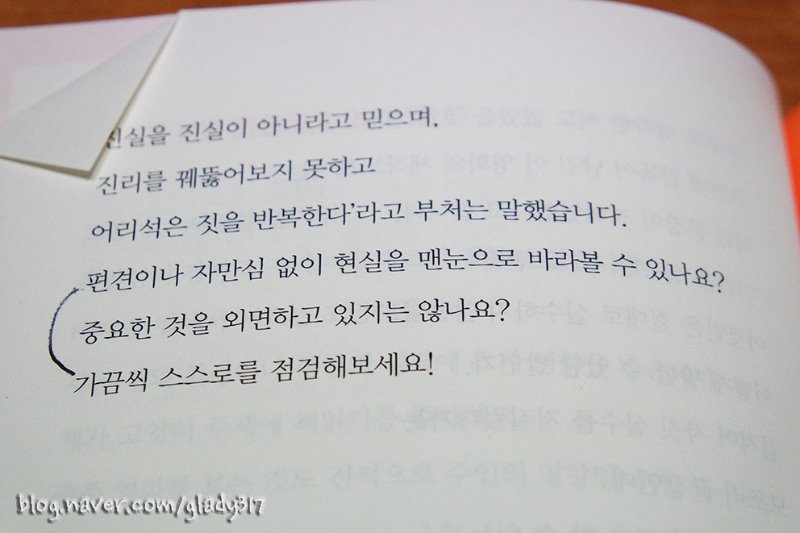 진실을 진실이 아니라고 믿으며.
진리를 꿰뚫어보지 못하고
어리석은 짓을 반복한다'라고 부처는 말했습니다.
편견이나 자만심 없이 현실을 맨눈으로 바라볼 수 있나요?
중요한 것을 외면하고 있지는 않나요?
가끔씩 스스로를 점검해보세요!
blog.naver.com/glady317